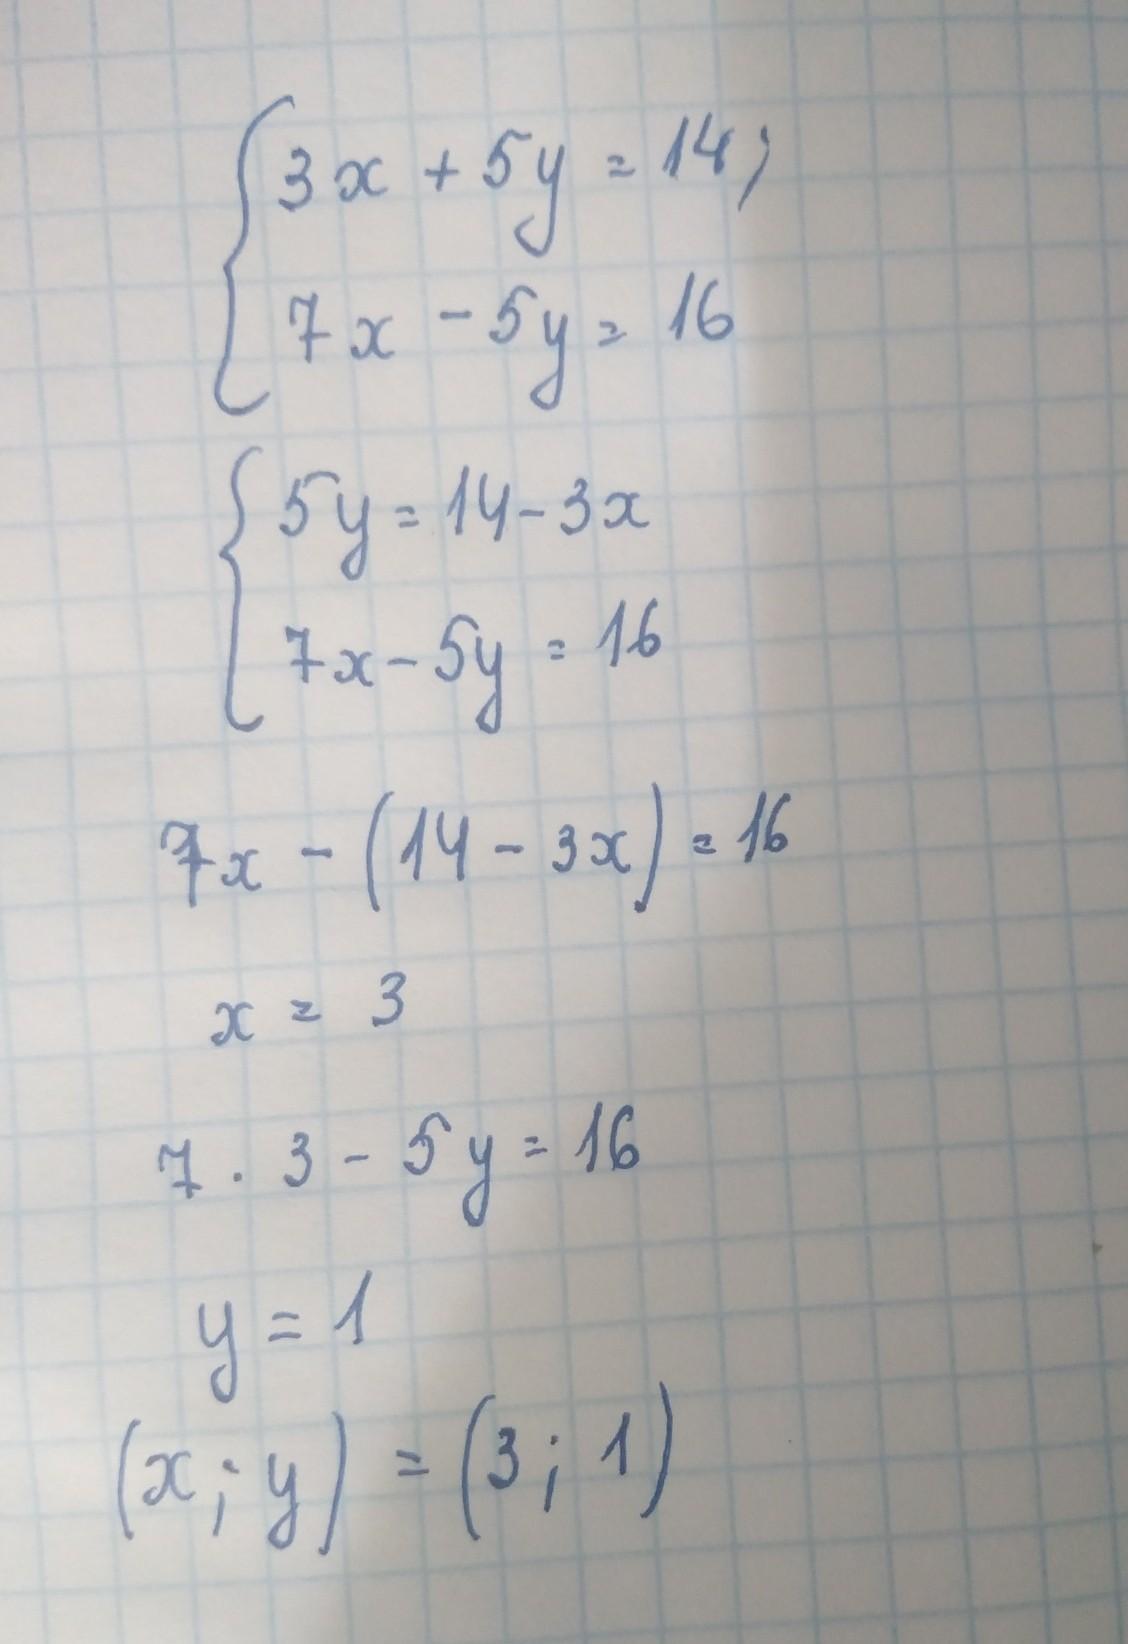 3x + 5y = 14;
7x - 5y = 16
5y = 14 - 3x
7x - 5y = 16
7x - (14 - 3x) = 16
x = 3
7 · 3 - 5y = 16
y = 1
(x; y) = (3; 1)